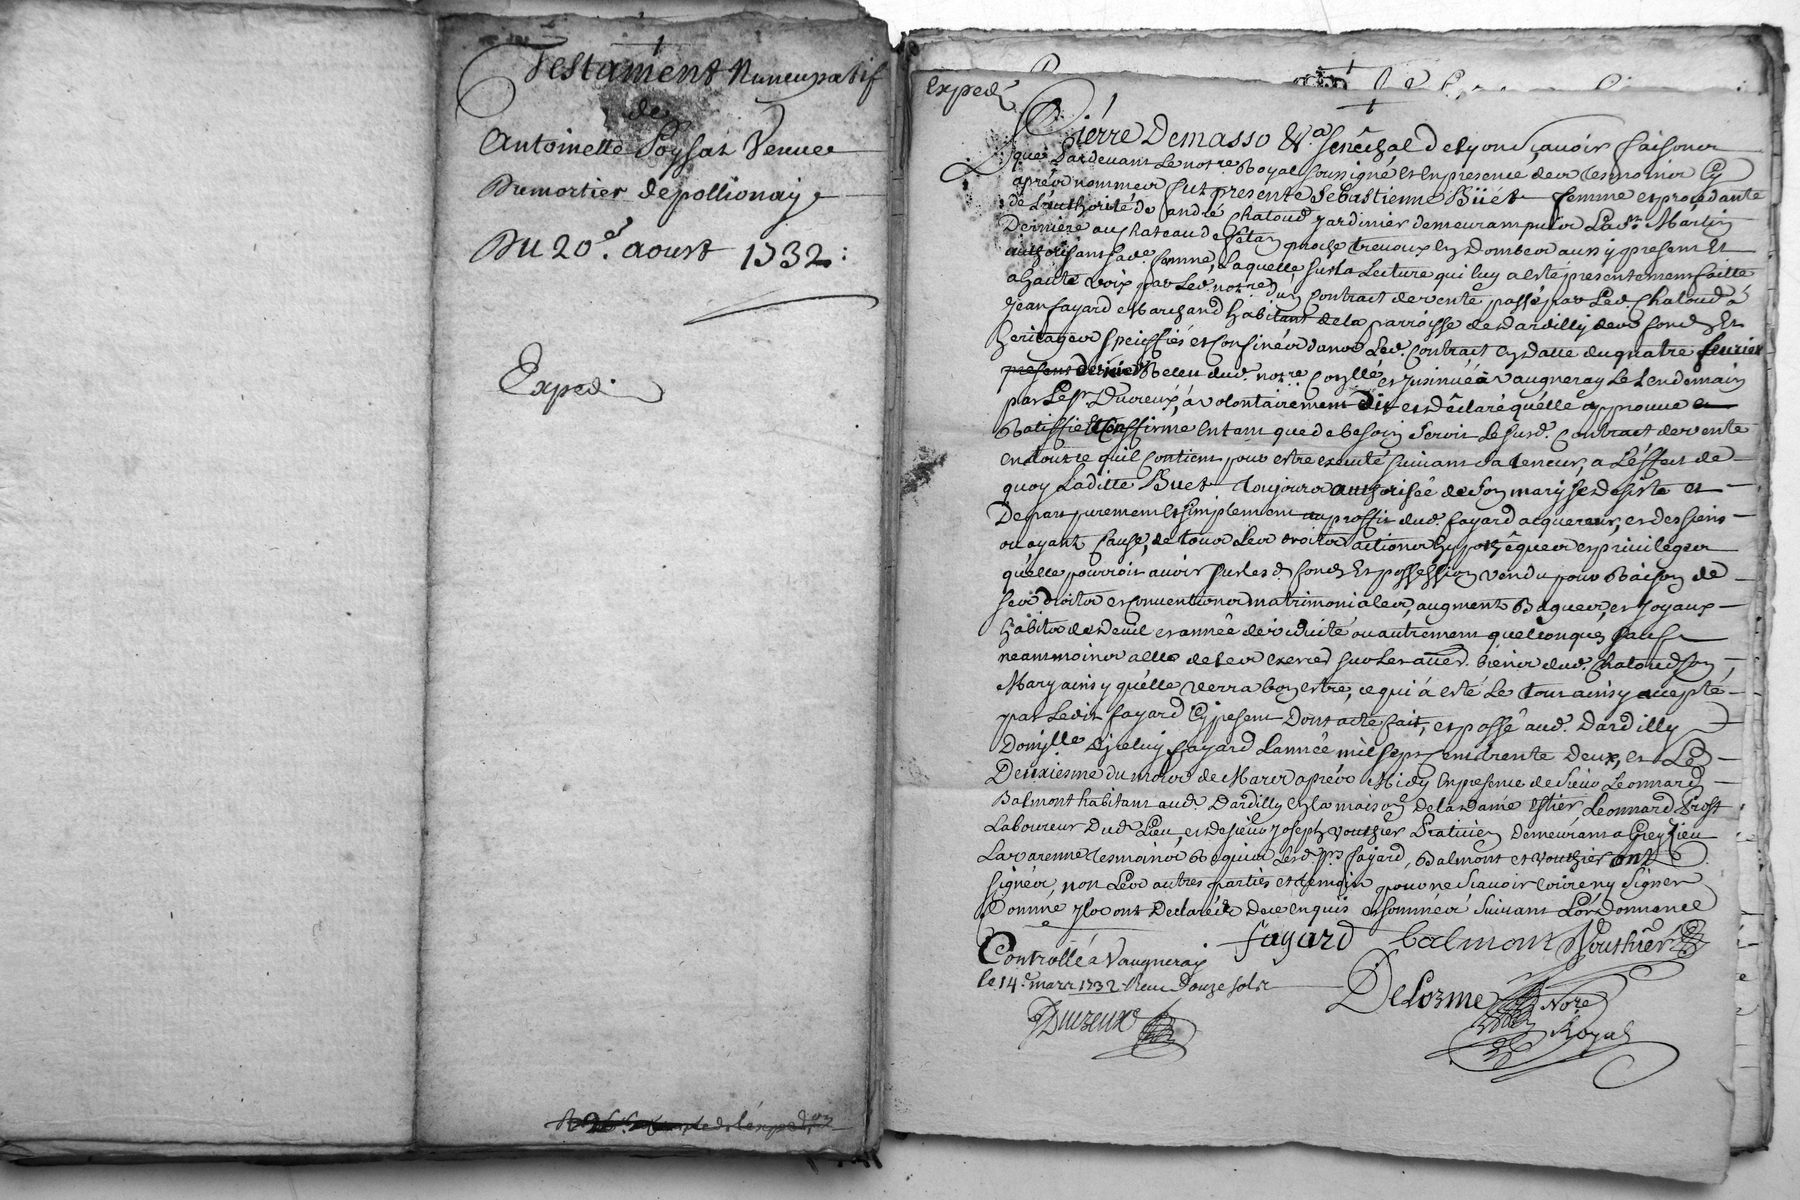 Testament Nuncupatif
de
Antoinette Poyssat Veuve
Dumortier de pollionay
Du 20e. aoust 1732:
Exped.
Exped.
Pierre Demasso &a. senéchal de Lyon sçavoir faisons
que pardevant Le notre. Royal soussigné et en presence des tesmoins Cy
aprés nommés fut presente Sebastienne Büet femme et procedante
de L'authorité de andré Chatoud Jardinier demeurant pour La dt. Martin
Derniere au chateau de fétan proche trevoux en Dombes aussy present et
authorisant sade. femme, Laquelle sur La Lecture qui luy a esté presentement faitte
a haute voix par Led. notre. du Contract de vente passé par Led. Chatoud à
Jean fayard Marchand habitant de la parroisse de dardilly des fonds et
heritages speciffiés et confinés dans Led. Contract en datte du quatre feurier
present dernier Receu dud. notre. Conlle et Jnsinué à Vaugneray Le Lendemain
par Le sr. Ducreux, à volontairement dit et déclaré qu'elle approuve
Ratiffie et Conffirme en tant que de besoin seroit Le susd. Contract de vente
en tout ce qu'il Contient pour estre executé suivant sa teneur, a L'éffect de
quoy Laditte Buet toujours authorisée de son mary se desiste et
Depart purement et simplement au proffit dud. fayard acquereur, et des siens
ou ayant Cause, de tous Les droits actions hypothêques et privileges
qu'elle pourroit avoir sur les d. fonds et possession vendu pour Raison de
ses droits et conventions matrimoniales, augment Bagues, et Joyaux
habits de deuil et année de viduité ou autrement quelconques sauf
neammoins a elle de les exercer sur Les autres biens dud. Chatoud son
Mary ainsy qu'elle verra bon estre, ce qui à esté Le tout ainsy accepté
par Ledit fayard Cy present Dont acte fait, et passé aud. Dardilly
Domylle d'jceluy fayard L'année mil sept cent trente deux, et Le
Deuxiesme du mois de Mars aprés Midy en presence de Sieur Leonnard
Balmont habitant aud. Dardilly en la maison de la dame Leonnard Prost
Laboureur Dud. Lieu, et de sieur Joseph vouthier Praticien demeurant a Grezieu
La varenne tesmoins Requis Les d. srs. fayard, Balmont et vouthier ont
signés, non Les autres parties et temoin pour ne sçavoir Ecrire ny signer
Comme jls ont Declaré de ce enquis et sommés suivant L'ordonnance
fayard balmont Vouthier
Controllé à Vaugneray
le 14e. mars 1732. Receu Douze sols
Ducreux
Delorme Nore.
Royal